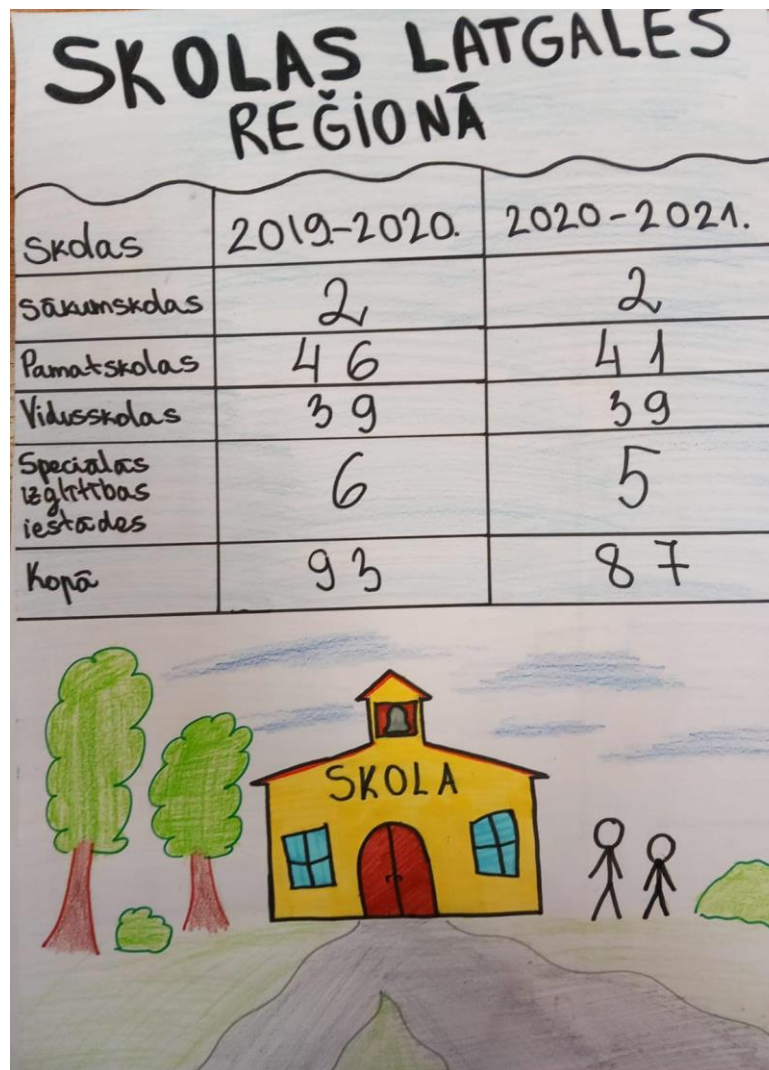 SKOLAS LATGALES
REĢIONĀ
Skolas 2019.-2020. 2020-2021.
Sākumskolas 2 2
Pamatskolas 46 41
Vidusskolas 39 39
Speciālās
izglītības
iestādes 6 5
Kopā 93 87
SKOLA